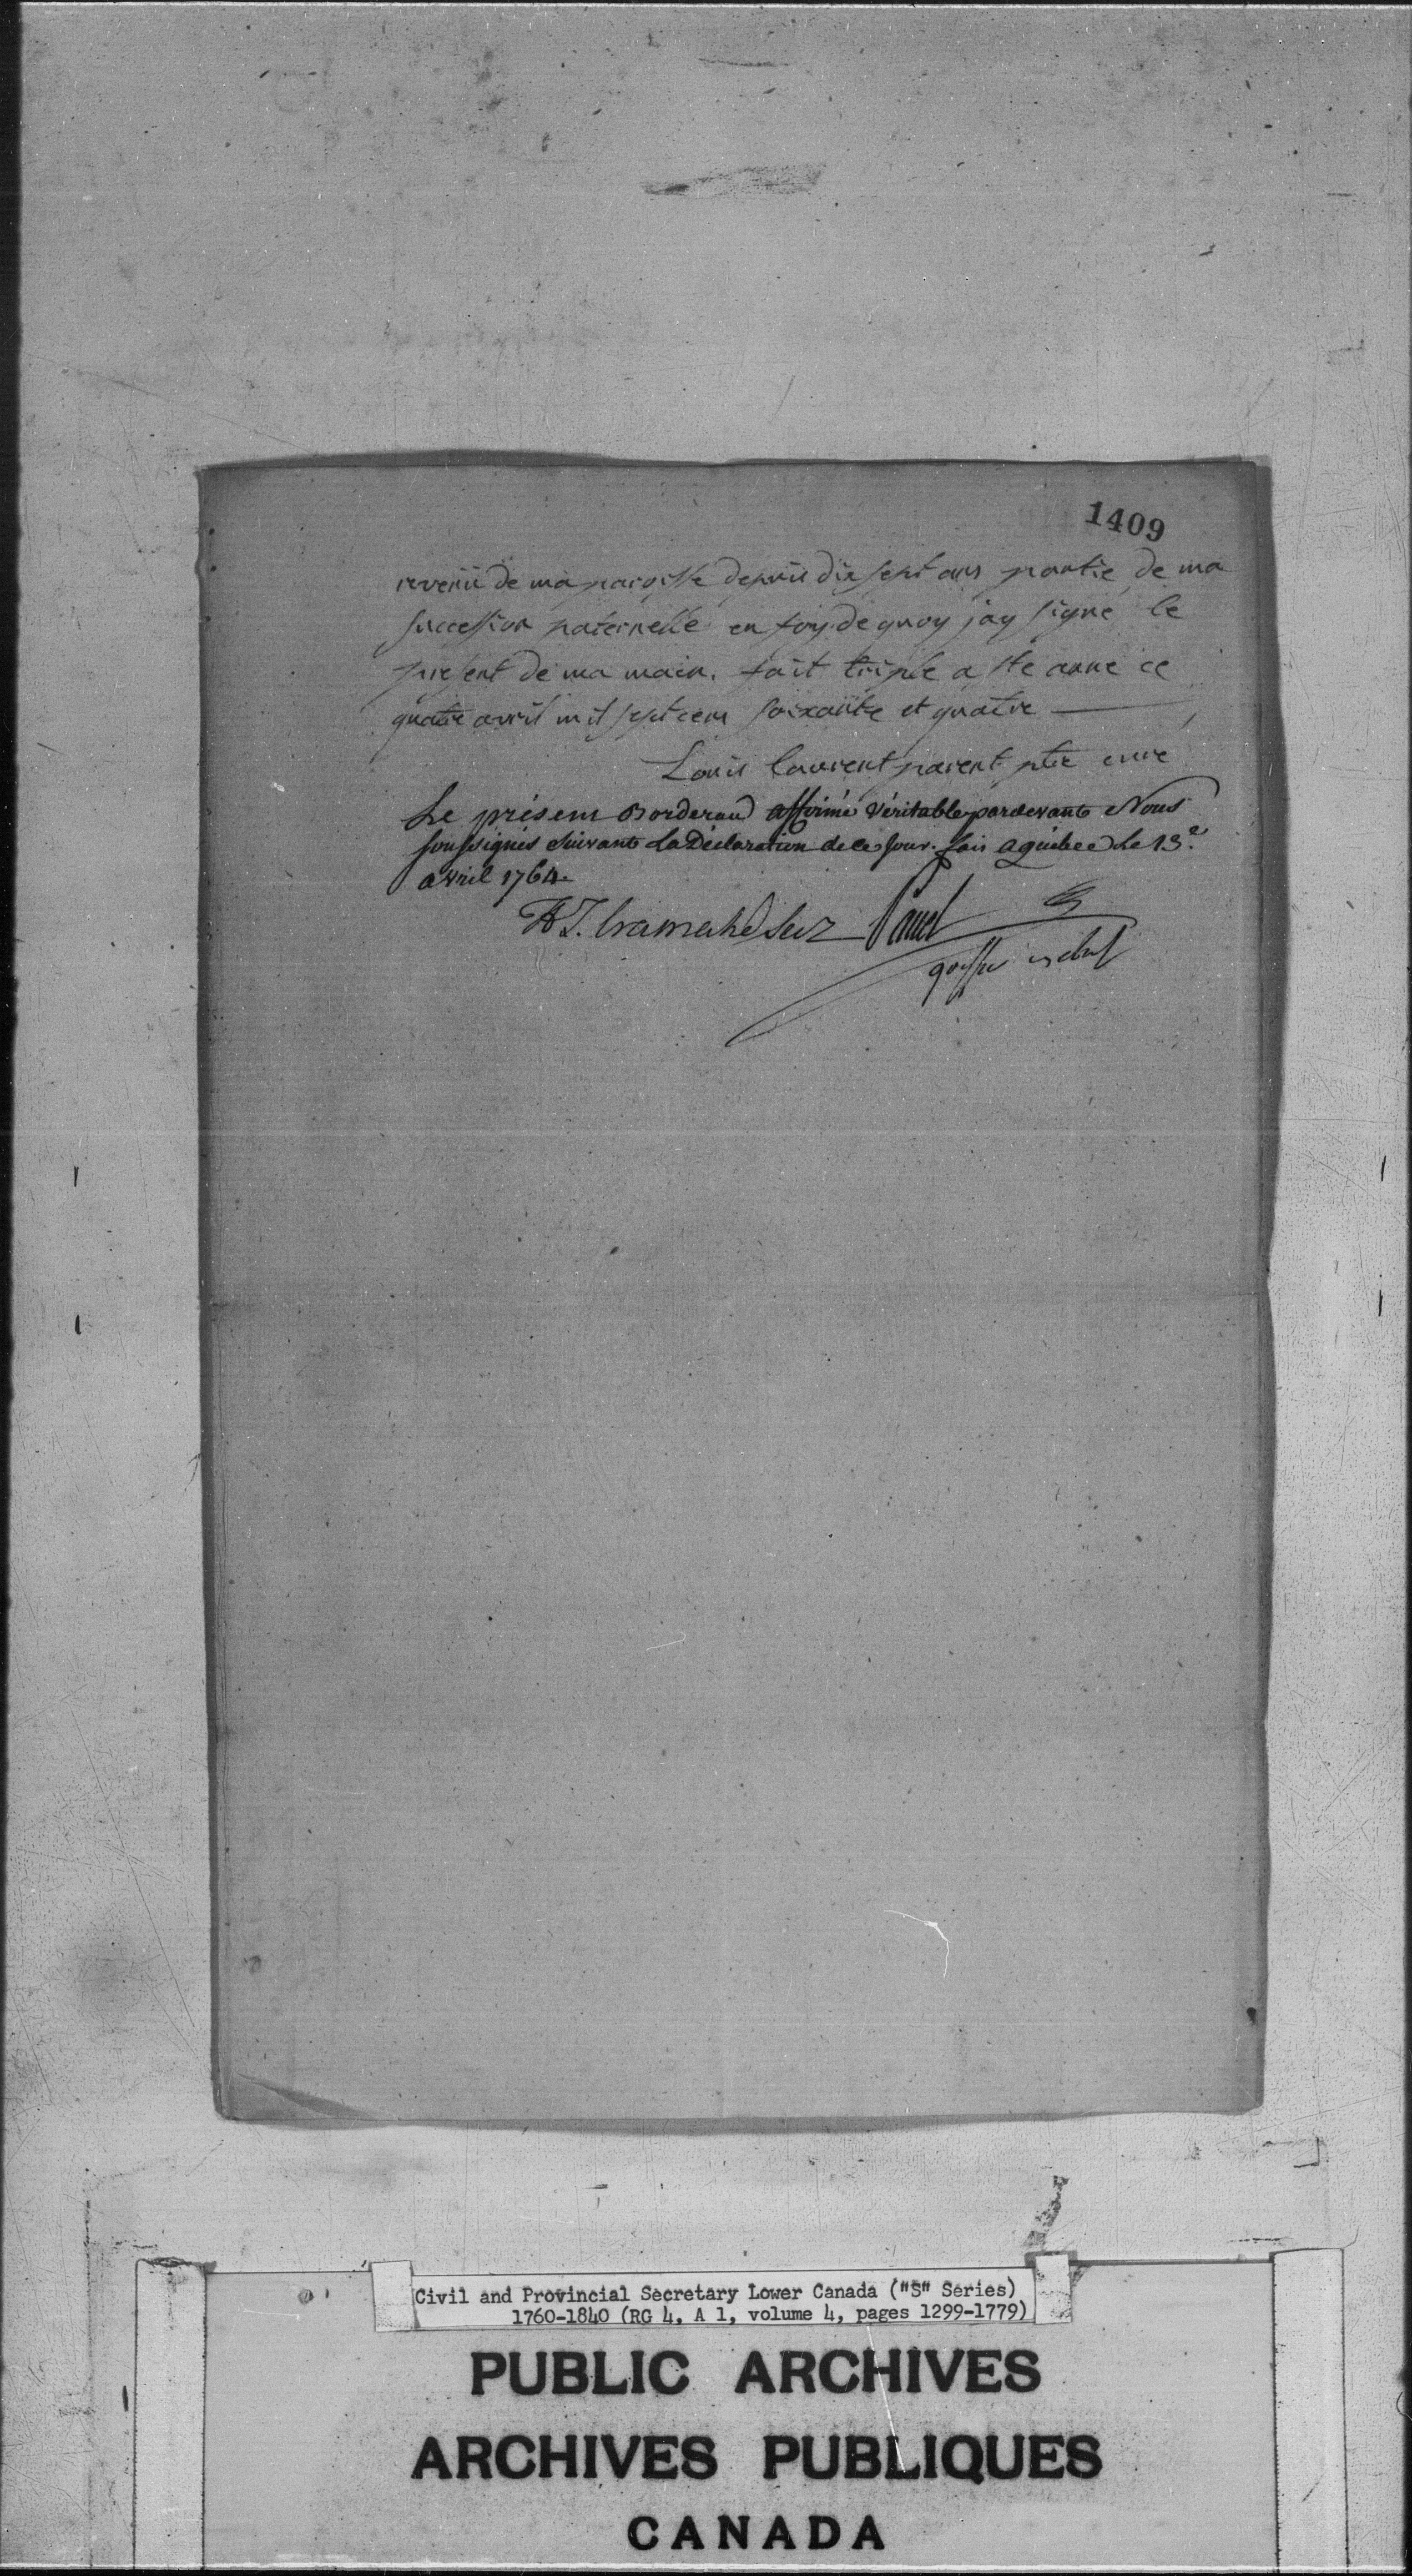 1409
revenü de ma paroisse depuis dix sept ans partie de ma
succession paternelle en foy de quoy jay signé le
present de ma main. fait triple a ste anne ce
quatre avril mil sept cens soixante et quatre
Louis laurent parent ptre curé
Le présent Borderau affirmé véritable pardevant Nous
soussignés suivant La Déclaration de ce jour. fait a québec Le 13e
avril 1764
H T. Cramahé Secr Panet
greffier
Civil and Provincial Secretary Lower Canada ("S" Series)
1760-1840 (RG 4, A 1, volume 4, pages 1299-1779)
PUBLIC ARCHIVES
ARCHIVES PUBLIQUES
CANADA